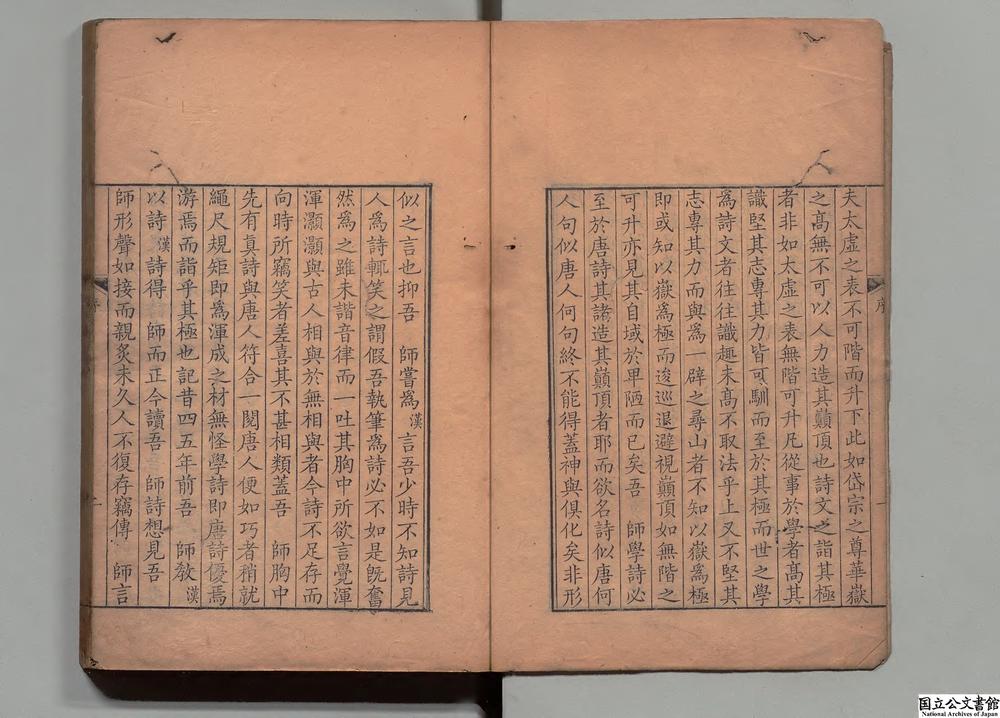 夫太虛之表不可階而升下此如岱宗之尊華嶽
之高無不可以人力造其巔頂也詩文之詣其極
者非如太虛之表無階可升凡從事於學者高其
識堅其志專其力皆可馴而至於其極而世之學
為詩文者往往識趣未高不取法乎上又不堅其
志專其力而與為一辟之尋山者不知以嶽為極
即或知以嶽為極而逡巡退避視巔頂如無階之
可升亦見其自域於卑陋而已矣吾　師學詩必
至於唐詩其諸造其巔頂者耶而欲名詩似唐何
人句似唐人何句終不能得蓋神與俱化矣非形
似之言也抑吾　師嘗為漢言吾少時不知詩見
人為詩輒笑之謂假吾執筆為詩必不如是既奮
然為之雖未諧音律而一吐其胸中所欲言覺渾
渾灝灝與古人相與於無相與者今詩不足存而
向時所竊笑者差喜其不甚相類蓋吾　師胸中
先有真詩與唐人符合一閱唐人便如巧者稍就
繩尺規矩即為渾成之材無怪學詩即唐詩優焉
游焉而詣乎其極也記昔四五年前吾　師教漢
以詩漢詩得　師而正今讀吾　師詩想見吾
師形聲如接而親炙未久人不復存竊傳　師言
序
一
序
国立公文書館
National Archives of Japan